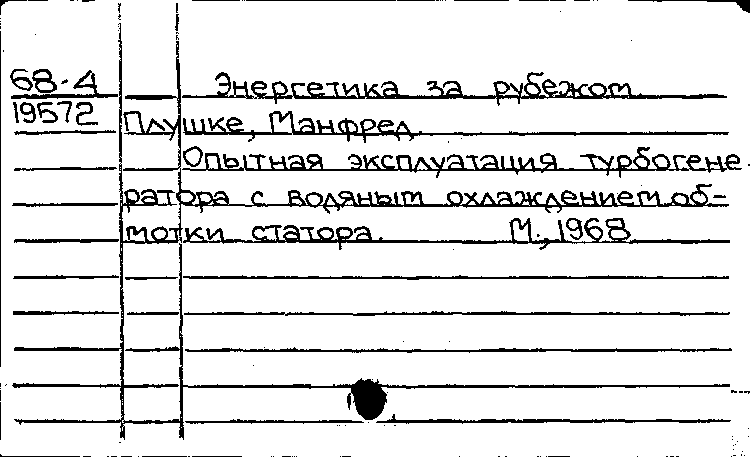 68-4 Энергетика за рубежом.
19572 Плушке, Манфред.
Опытная эксплуатация турбогене-
ратора с водяным охлаждением об-
мотки статора. М., 1968